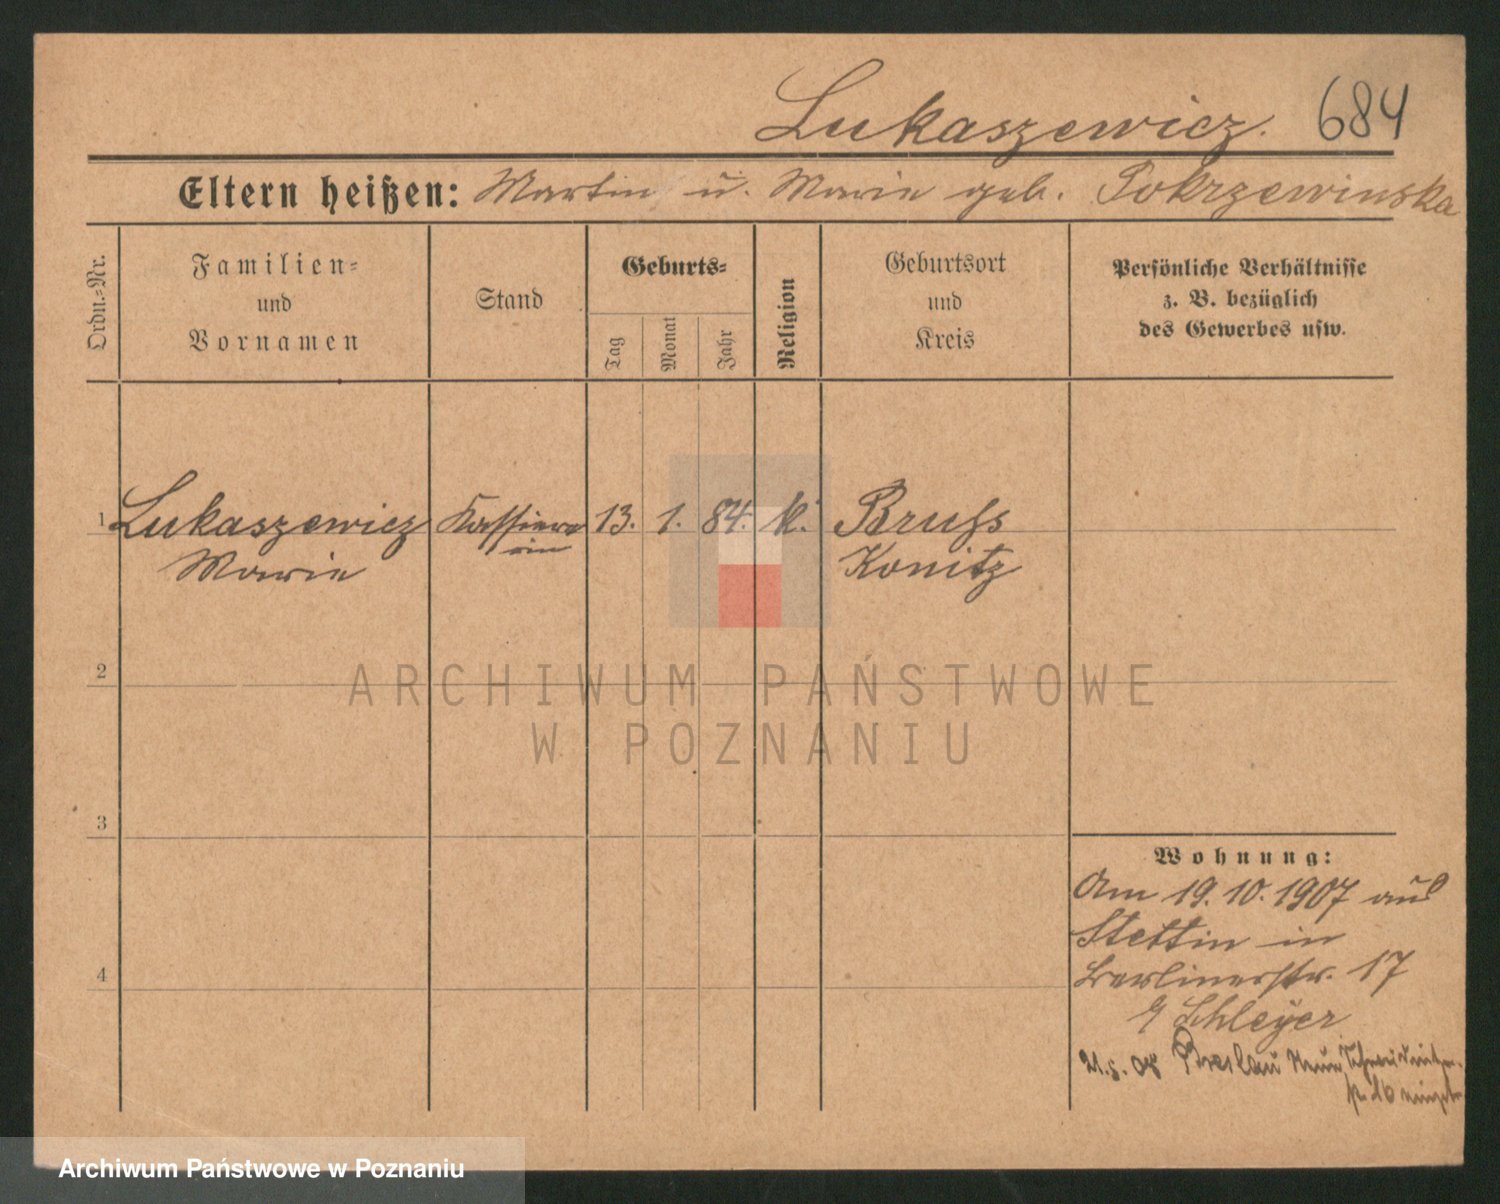 Lukaszewicz. 684
Eltern heißen: Martin u. Marie geb. Pokrzewinska
Ordn.-Nr.
Familien-
und
Vornamen
Stand
Geburts-
Tag
Monat
Jahr
Religion
Geburtsort
und
Kreis
Persönliche Verhältnisse
z. B. bezüglich
des Gewerbes usw.
1 Lukaszewicz Kassierer 13. 1. 84. k. Bruss
Marie in Konitz
2
3
4
Wohnung:
Am 19.10.1907 aus
Stettin in
Berlinerstr. 17
Schleyer
21.5.08 Breslau Neue
ARCHIWUM PAŃSTWOWE
W POZNANIU
Archiwum Państwowe w Poznaniu